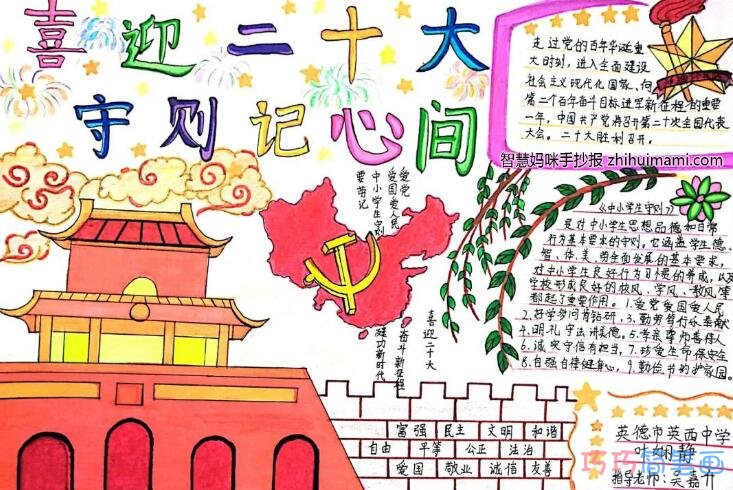 喜迎二十大
守则记心间
走过党的百年华诞重
大时刻，进入全面建设
社会主义现代化国家、向
第二个百年奋斗目标进军新征程的重要
一年，中国共产党将召开第二十次全国代表
大会。二十大胜利召开。
智慧妈咪手抄报 zhihuimami.com
爱党
爱国爱人民
中小学生守则
要劳记
喜迎二十大
奋斗新征程
建功新时代
《中小学生守则》
是对中小学生思想品德和日常
行为基本要求的守则，它涵盖学生德、
智、体、美、劳全面发展的基本要求，
对中小学生良好行为习惯的养成，以及
学校形成良好的校风、学风、教风等
都起了重要作用。1.爱党爱国爱人民
2.好学多问肯钻研，3.勤劳笃行乐奉献
4.明礼守法讲美德。5.孝亲尊师善待人
6.诚实守信有担当，7.珍爱生命保安全
8.自强自律健身心，9.勤俭节约护家园。
富强 民主 文明 和谐
自由 平等 公正 法治
爱国 敬业 诚信 友善
英德市英西中学
叶 静
指导老师：吴嘉
巧巧简笔画